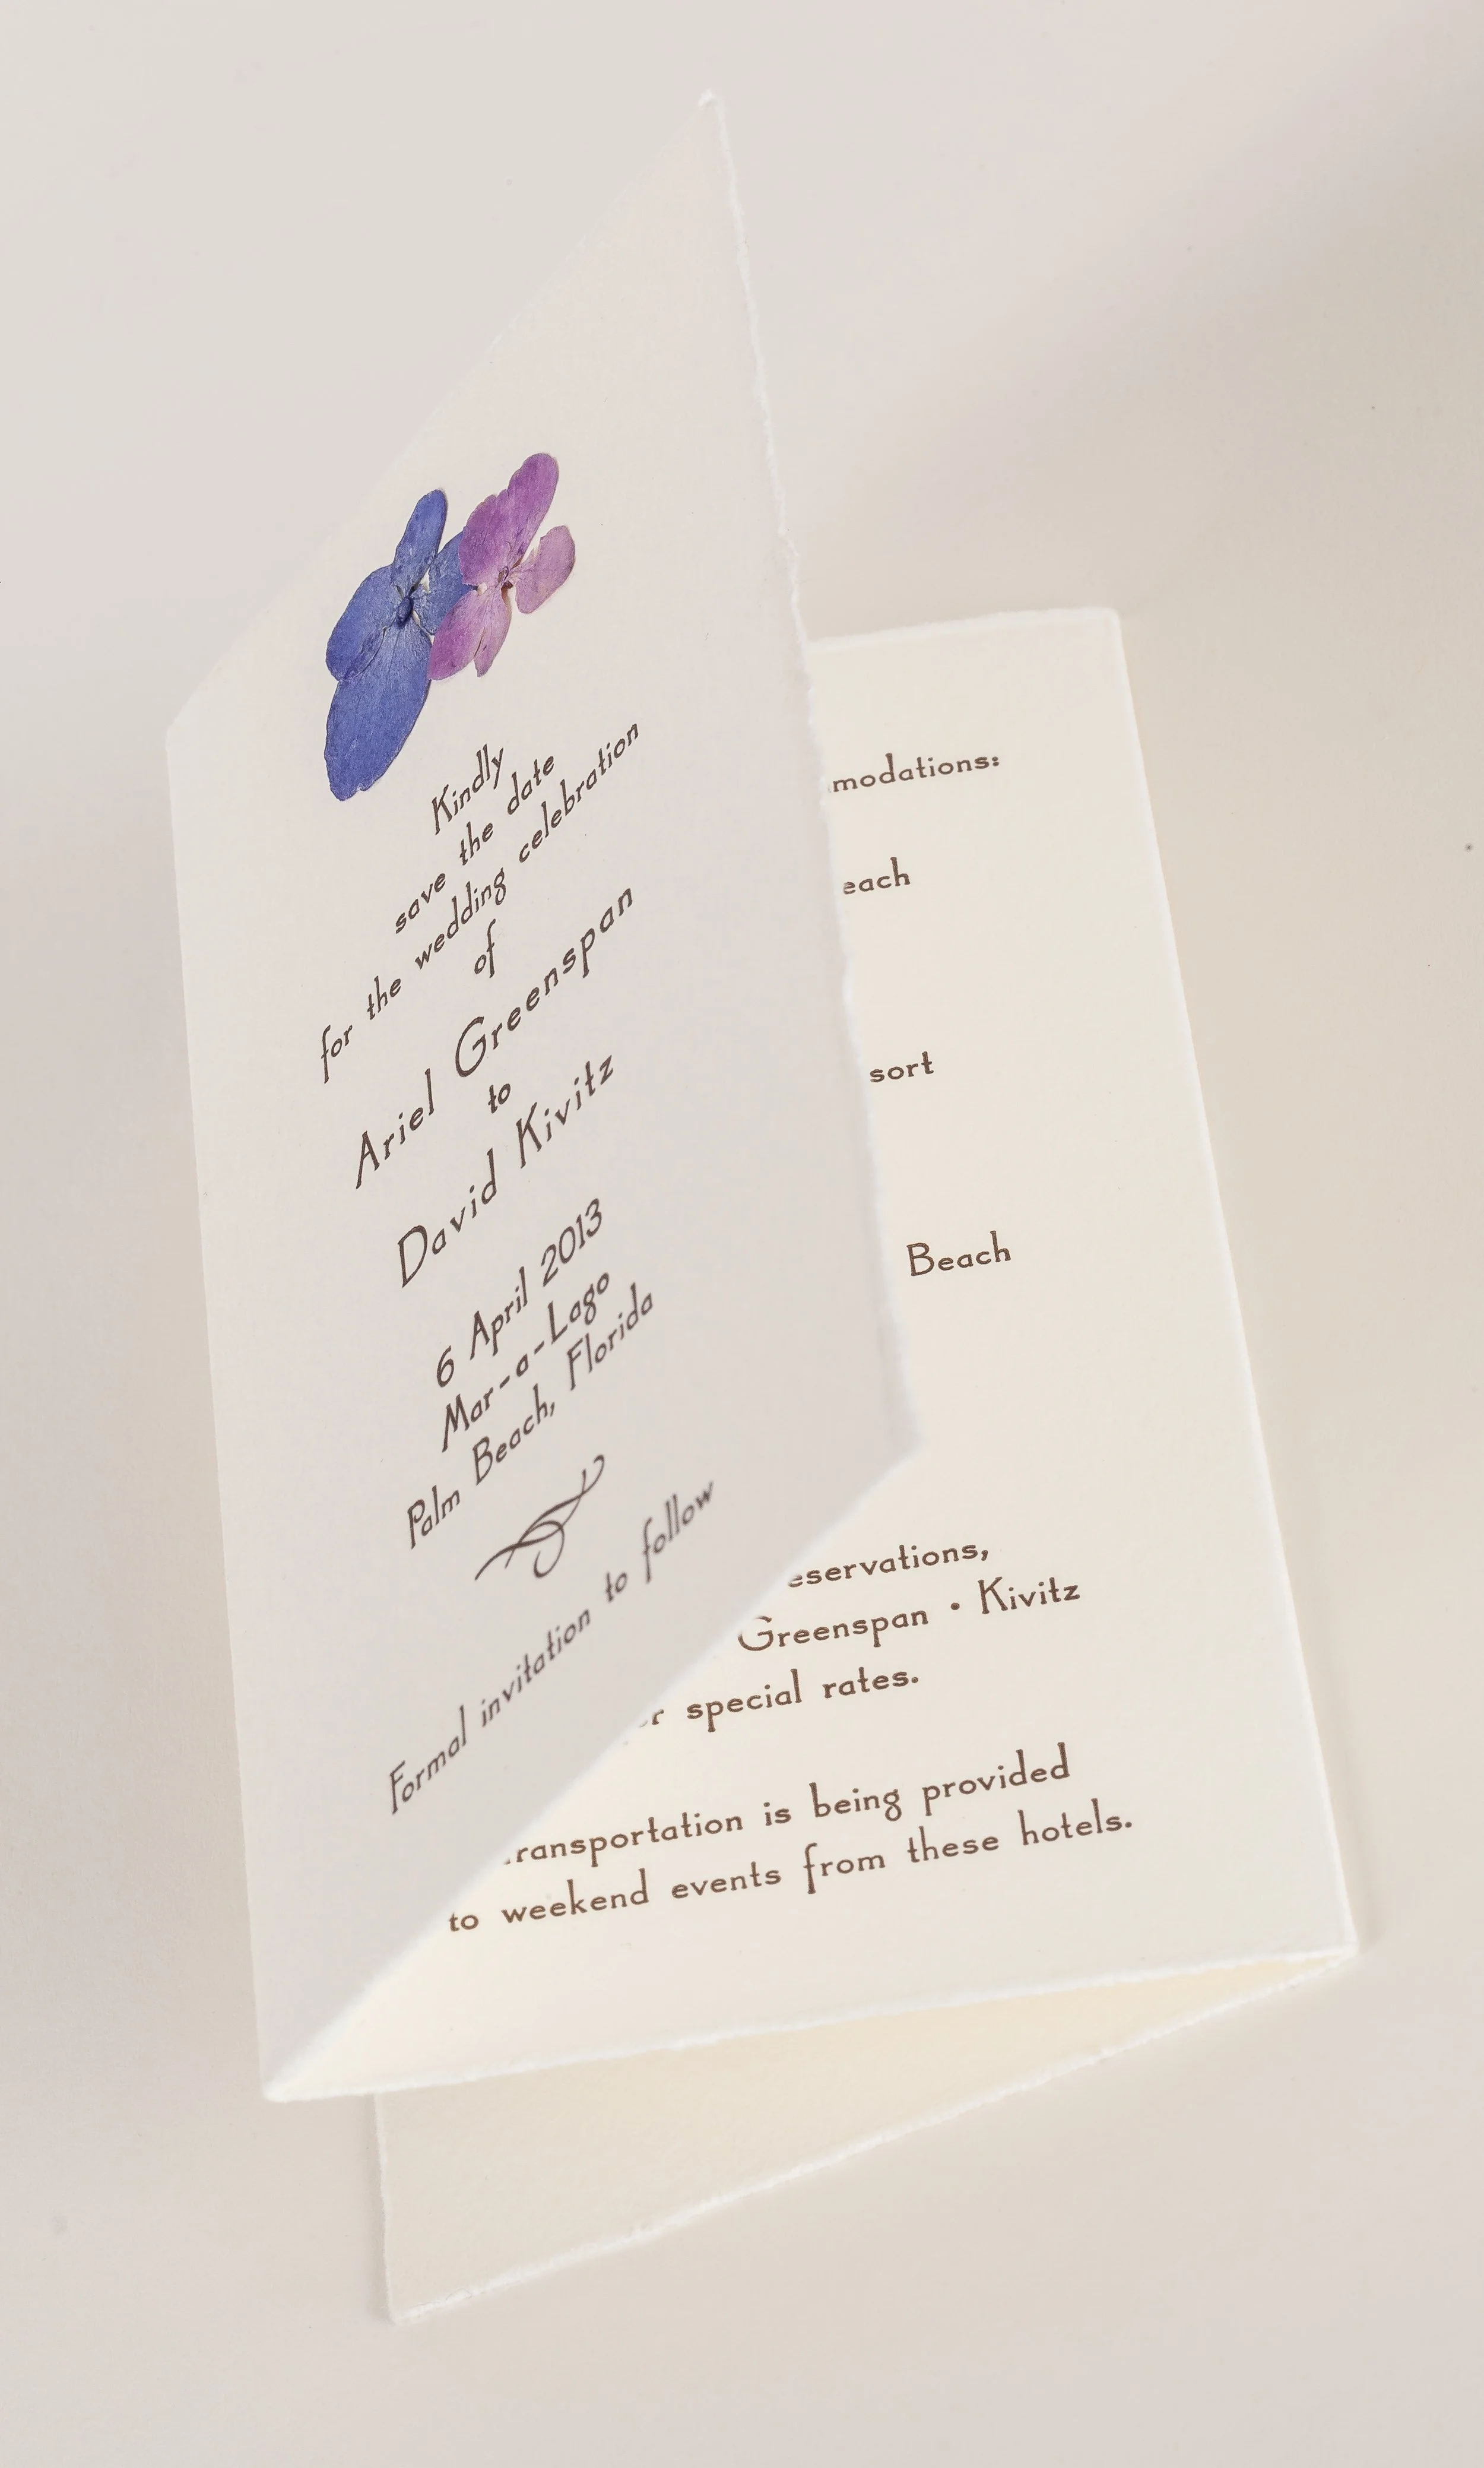 Kindly
save the date
for the wedding celebration
of
Ariel Greenspan
to
David Kivitz
6 April 2013
Mar-a-Lago
Palm Beach, Florida
Formal invitation to follow
modations:
each
sort
Beach
eservations,
Greenspan • Kivitz
r special rates.
ransportation is being provided
to weekend events from these hotels.